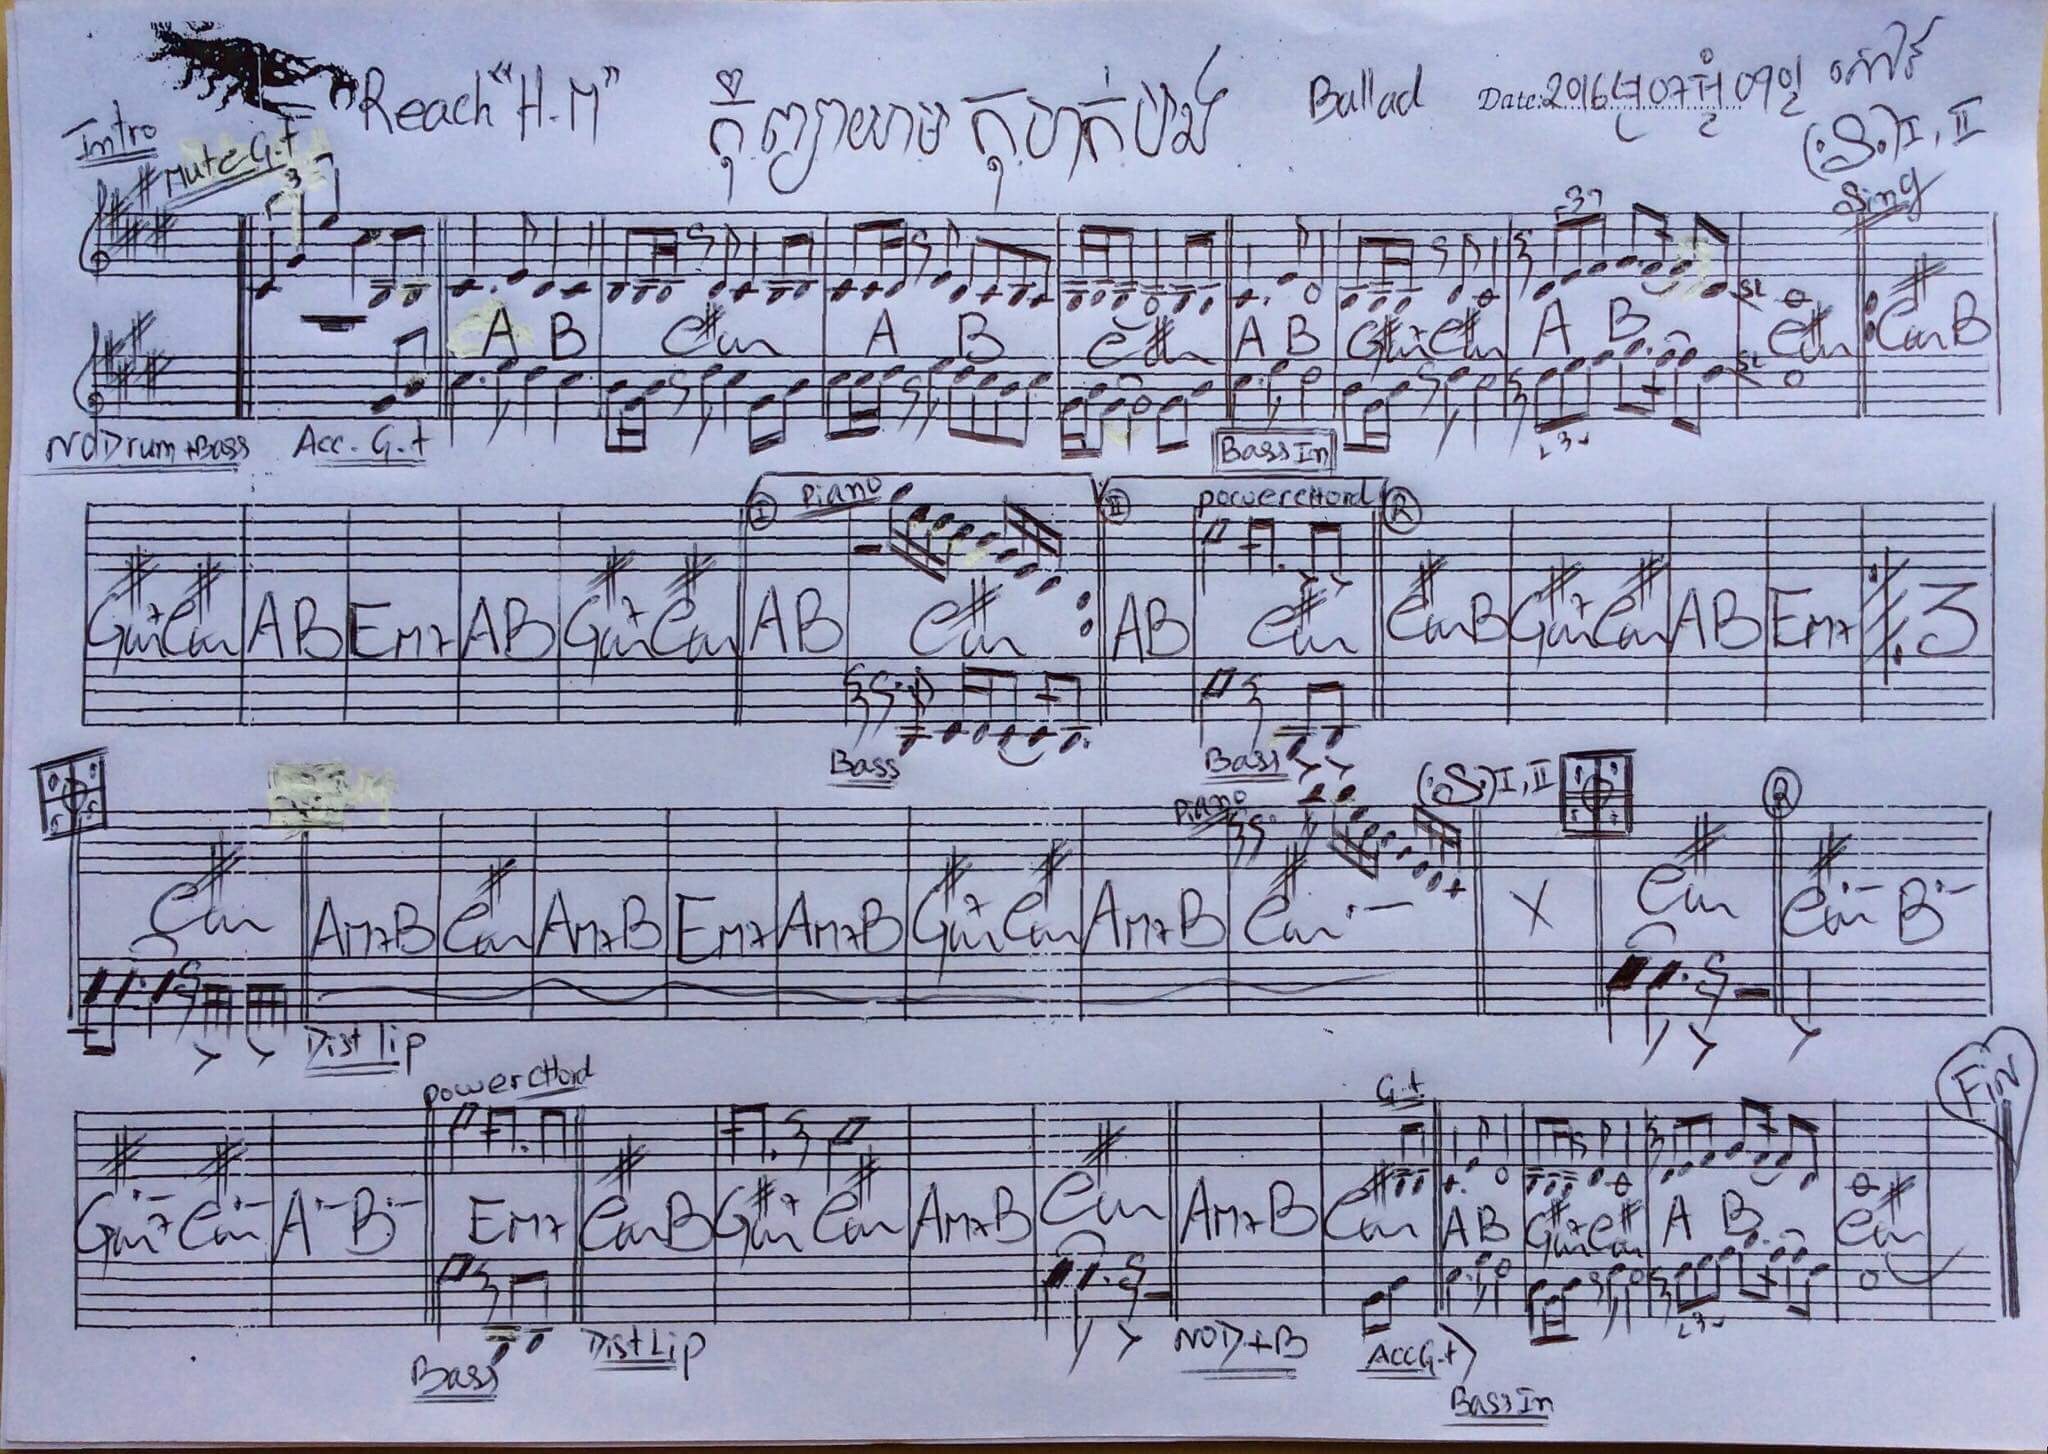 Reach "H.M" កុំព្យាយាមកុហក់ Ballad Date: 2016 07 09
Intro Mute G.t 3 3 (.S.) I, II
Sing
A B C#m A B C#m A B G#m7 C#m A B SL C#m C#m B
SL
No Drum + Bass Acc. G.t Bass In 3
I Piano II powerchord R
G#m7 C#m A B EM7 A B G#m7 C#m A B C#m A B C#m C#m B G#m7 C#m A B EM7 3
Bass Bass
Piano (.S.) I, II R
C#m AM7 B C#m AM7 B EM7 AM7 B G#m7 C#m AM7 B C#m X C#m C#m B
Dist lip
powerchord G.t Fin
G#m7 C#m A B EM7 C#m B G#m7 C#m AM7 B C#m AM7 B C#m A B G#m7 C#m A B C#m
Bass Dist Lip NO D+B Acc G.t 3
Bass In